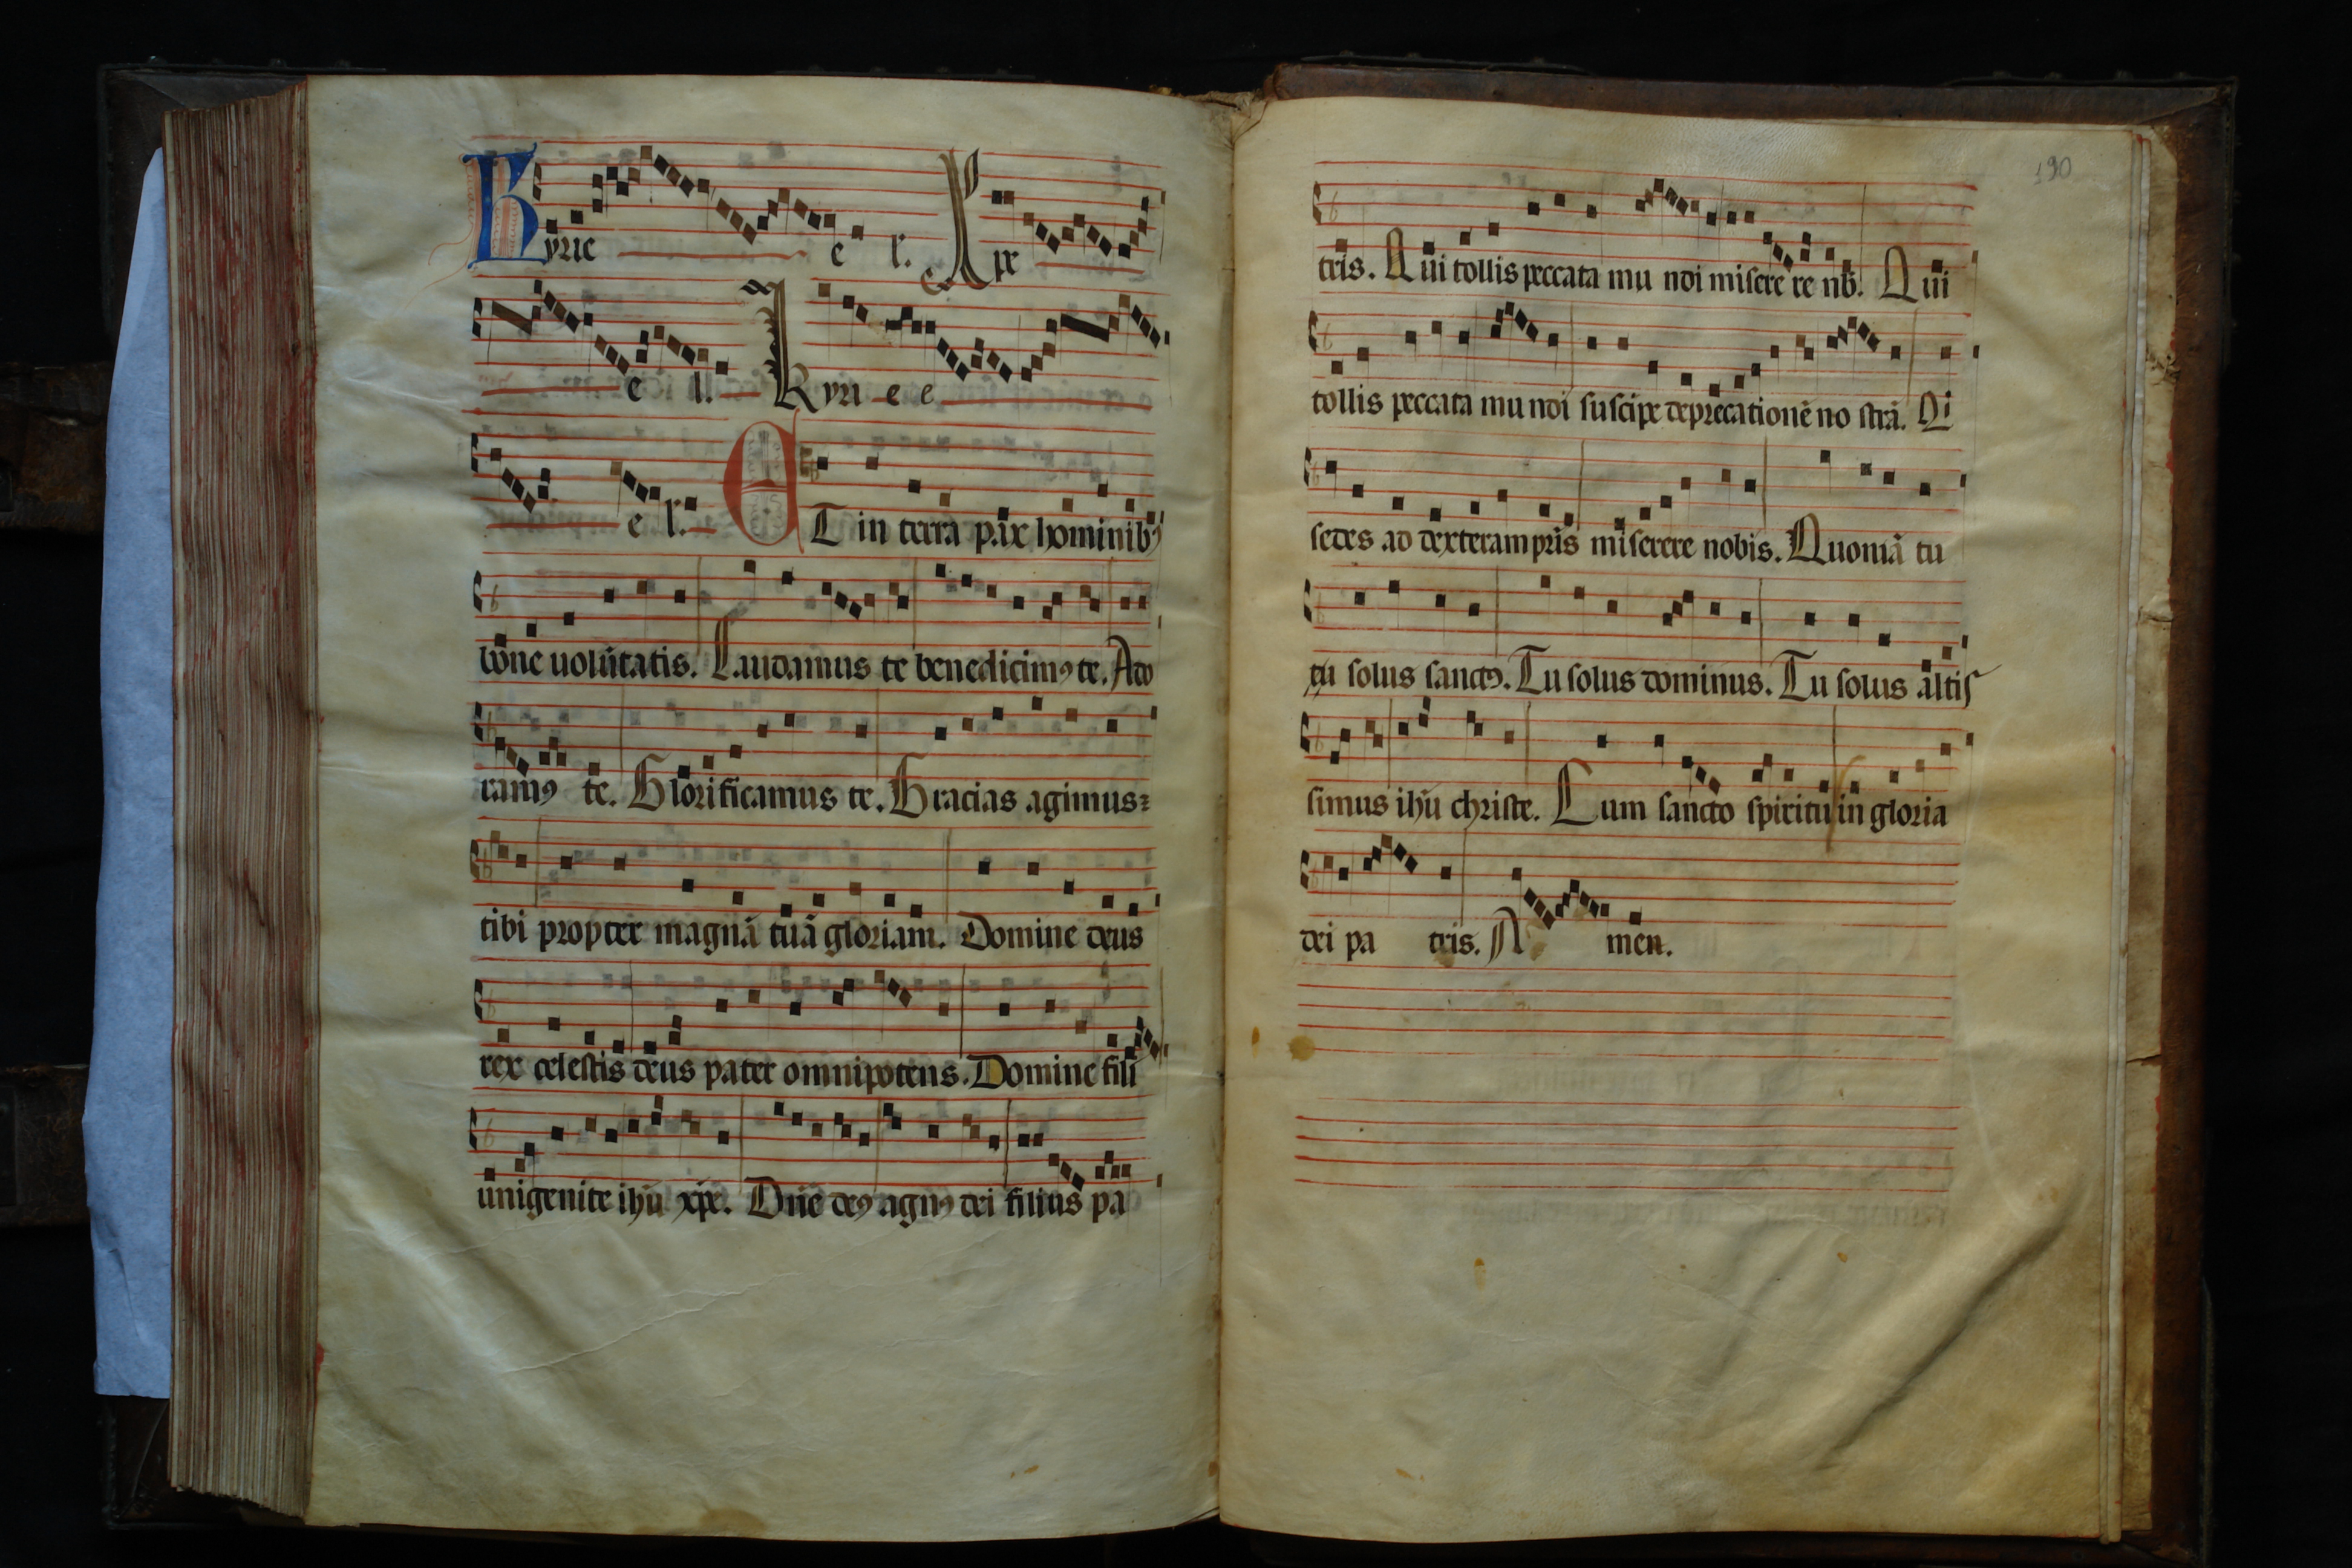 Kyrie e l. Xpe
e l. Kyri e e
e l. ET in terra pax hominibꝰ
bone uolūtatis. Laudamus te benedicimꝰ te. Ado
ramꝰ te. Glorificamus te. Gracias agimus
tibi propter magnā tuā gloriam. Domine deus
rex celestis deus pater omnipotens. Domine fili
unigenite ihū xpe. Dn̄e deꝰ agnꝰ dei filius pa
190
tris. Qui tollis peccata mu ndi misere re nb̄. Qui
tollis peccata mu ndi suscipe deprecationē no strā. Qi
sedes ad dexteram pr̄is miserere nobis. Quoniā tu
tu solus sanctꝰ. Tu solus dominus. Tu solus altis
simus ihū christe. Cum sancto spiritu in gloria
dei pa tris. A men.